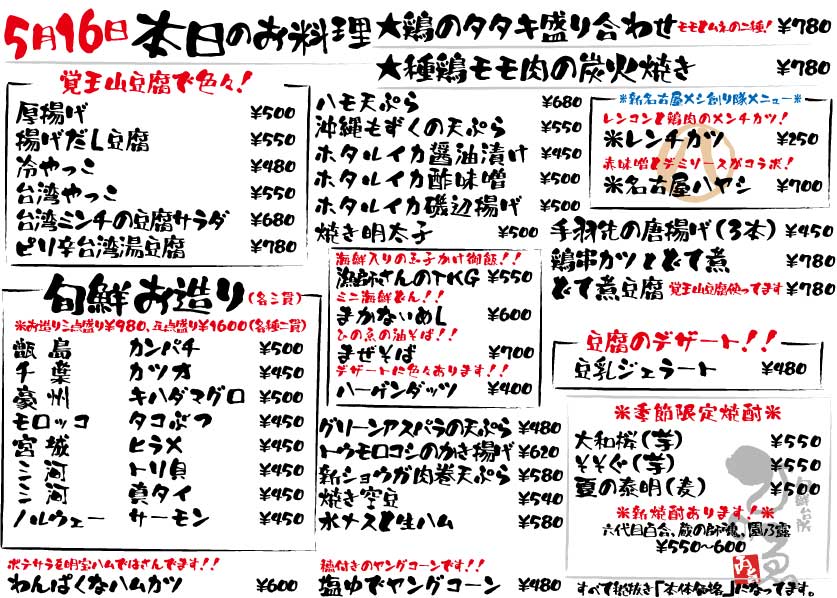 5月16日 本日のお料理
★鶏のタタキ盛り合わせ モモとムネの二種! ¥780
★種鶏モモ肉の炭火焼き ¥780
覚王山豆腐で色々!
厚揚げ ¥500
揚げだし豆腐 ¥550
冷やっこ ¥480
台湾やっこ ¥550
台湾ミンチの豆腐サラダ ¥680
ピリ辛台湾湯豆腐 ¥780
旬鮮お造り(各三貫)
※お造り三点盛り¥980、五点盛り¥1600(各種二貫)
甑島 カンパチ ¥500
千葉 カツオ ¥450
豪州 キハダマグロ ¥500
モロッコ タコぶつ ¥450
宮城 ヒラメ ¥450
三河 トリ貝 ¥450
三河 真タイ ¥450
ノルウェー サーモン ¥450
ポテサラを明宝ハムではさんでます!!
わんぱくなハムカツ ¥600
ハモ天ぷら ¥680
沖縄もずくの天ぷら ¥550
ホタルイカ醤油漬け ¥450
ホタルイカ酢味噌 ¥500
ホタルイカ磯辺揚げ ¥500
焼き明太子 ¥500
海鮮入りの玉子かけ御飯!!
漁師さんのTKG ¥550
ミニ海鮮どん!!
まかないめし ¥600
ひの恵の油そば!!
まぜそば ¥700
デザートに色々あります!!
ハーゲンダッツ ¥400
グリーンアスパラの天ぷら ¥480
トウモロコシのかき揚げ ¥620
新ショウガ肉巻天ぷら ¥580
焼き空豆 ¥540
水ナスと生ハム ¥580
穂付きのヤングコーンです!!
塩ゆでヤングコーン ¥480
※新名古屋メシ創り隊メニュー※
レンコンと鶏肉のメンチカツ!
※レンチカツ ¥250
赤味噌とデミソースがコラボ!
※名古屋ハヤシ ¥700
手羽先の唐揚げ(3本) ¥450
鶏串カツとどて煮 ¥780
どて煮豆腐 覚王山豆腐使ってます ¥780
豆腐のデザート!!
豆乳ジェラート ¥480
※季節限定焼酎※
大和桜(芋) ¥550
そそぐ(芋) ¥550
夏の泰明(麦) ¥500
※新焼酎あります!※
六代目百合、蔵の師魂、園乃露
¥550〜600
旬鮮台所
すべて税抜き「本体価格」になってます。